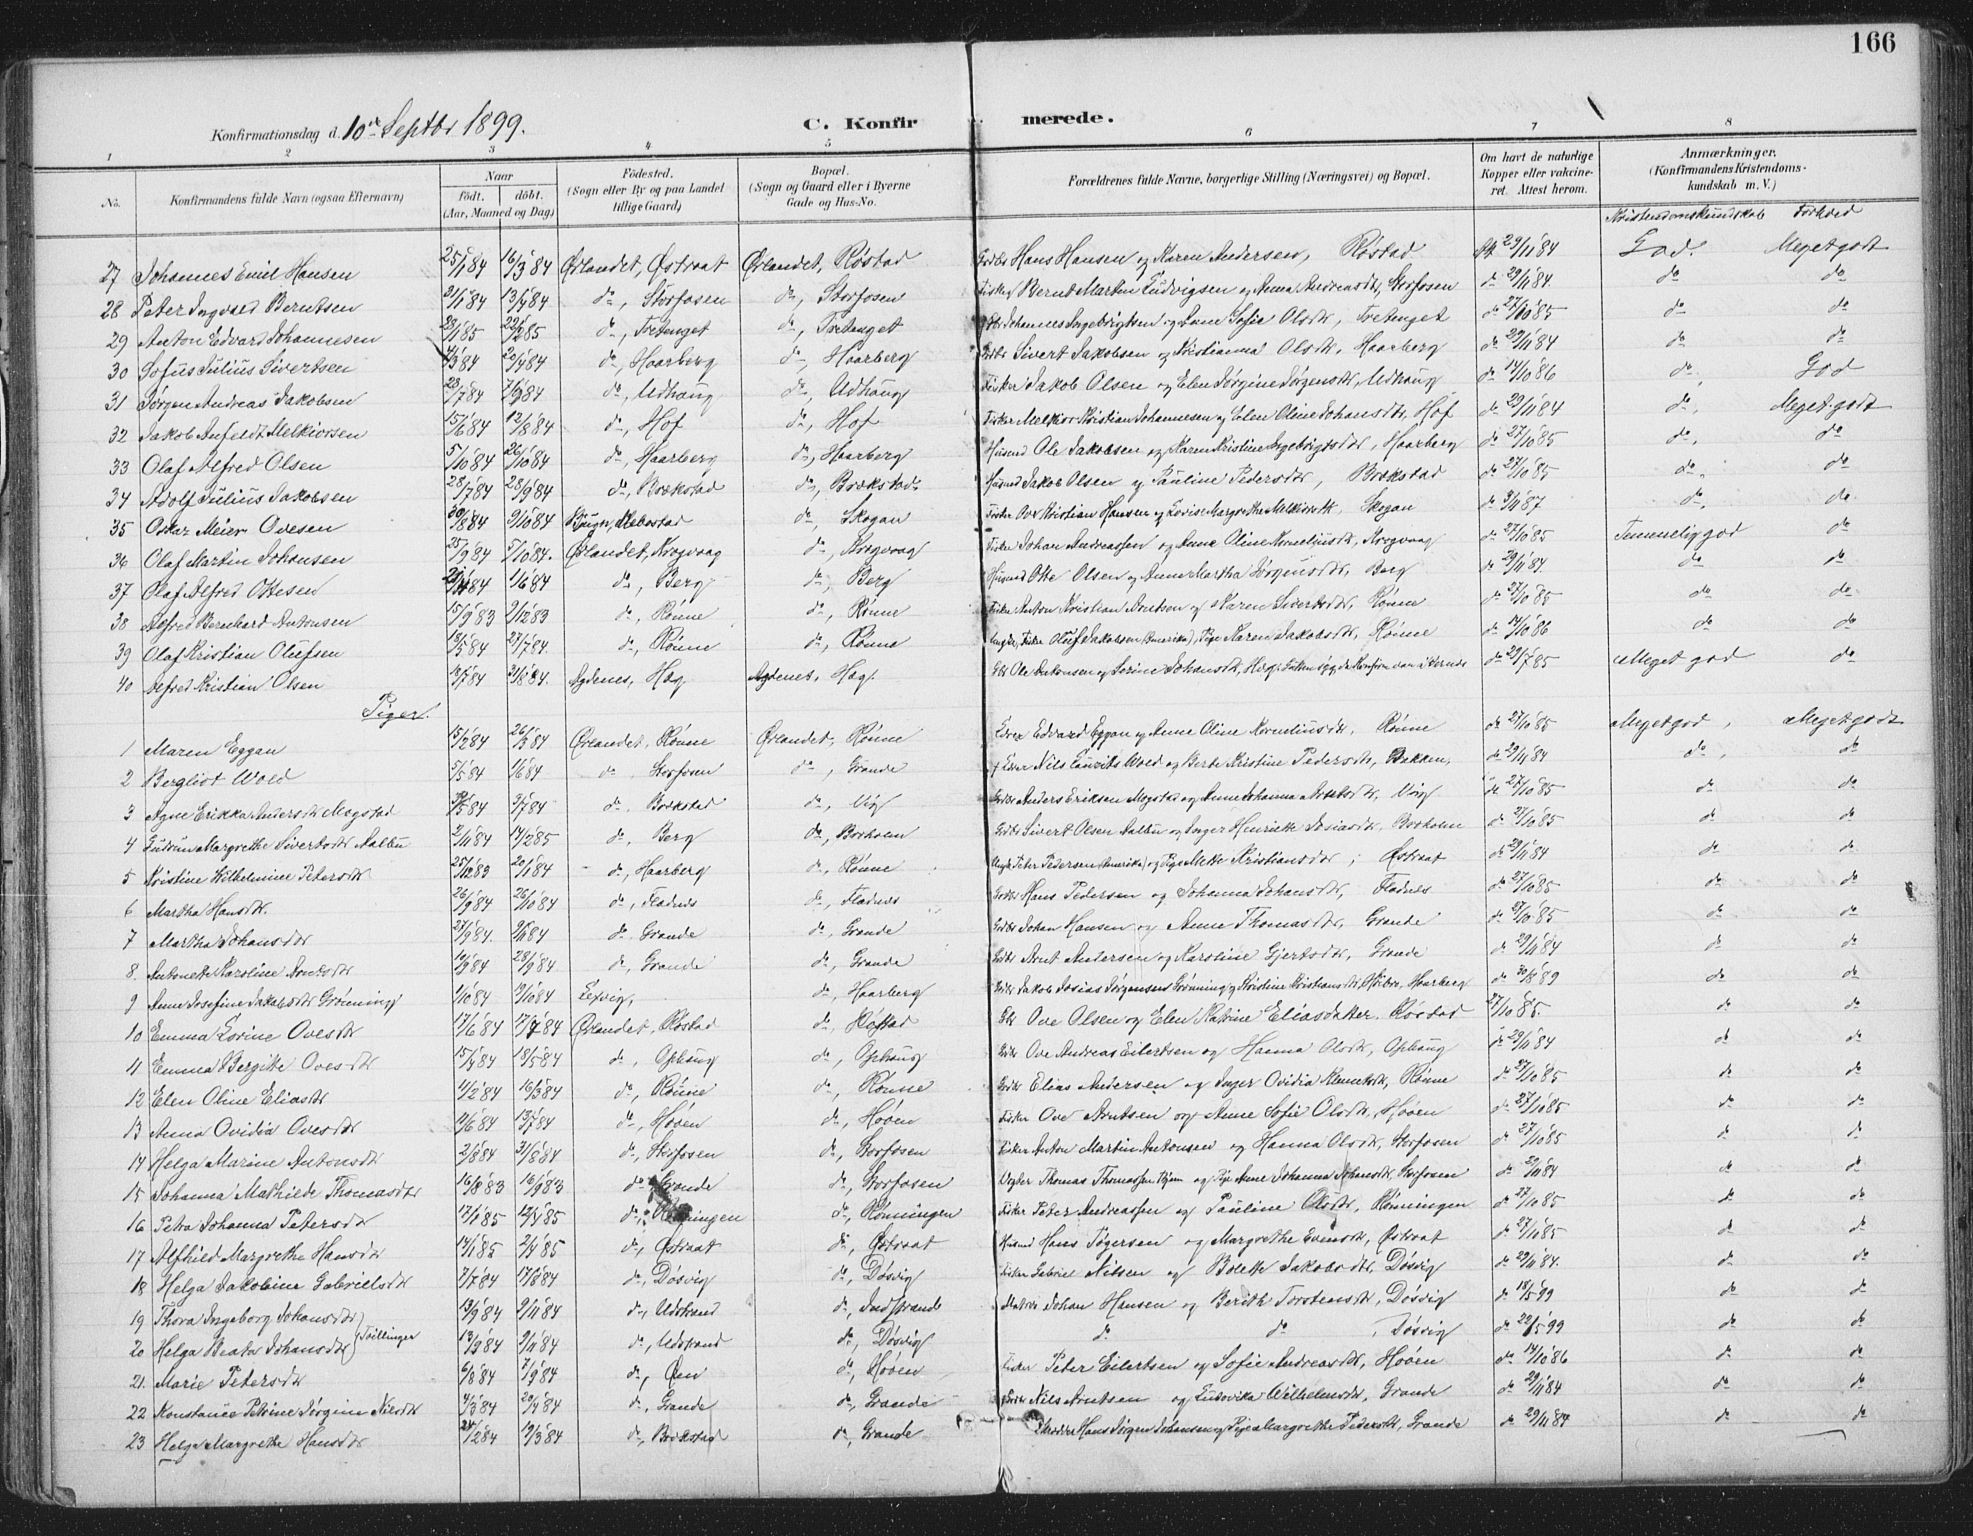 166
Konfirmationsdag d. 10de Septbr 1899.
C. Konfirmerede.
1 2 3 4 5 6 7 8
No.
Konfirmandens fulde Navn (ogsaa Efternavn)
Naar
Födt. döbt.
(Aar, Maaned og Dag)
Födested.
(Sogn eller By og paa Landet
tillige Gaard)
Bopæl.
(Sogn og Gaard eller i Byerne
Gade og Hus-No.
Forældrenes fulde Navne, borgerlige Stilling (Næringsvei) og Bopæl.
Om havt de naturlige
Kopper eller vakcine-
ret. Attest herom.
Anmærkninger.
(Konfirmandens Kristendoms-
kundskab m. V.)
Kristendomskundskab Forhold
27 Johannes Emil Hansen 25/1 84 16/3 84 Ørlandet, Østraat Ørlandet, Røstad Hans Hansen og Karen Andersen, Røstad 29/11 84 God. Meget godt
28 Peter Ingvald Berntsen 3/1 84 13/4 84 do, Storfosen do, Storfosen Fisker Bernt Martin Ludvigsen og Anna Andreasdtr, Storfosen do 29/11 84. do do
29 Anton Edvard Johannesen 23/1 85 22/2 85 do, Tretenget do, Tretenget Johannes Ingebrigtsen og Anne Sofie Olsdtr, Tretenget do 27/10 85 do do
30 Sofus Julius Sivertsen 4/3 84 20/4 84 do, Haarberg do, Haarberg Sivert Jakobsen og Kristianna Olsdtr, Haarberg do 29/11 84 do do
31 Jørgen Andreas Jakobsen 23/7 84 7/9 84 do, Udhaug do, Udhaug Fisker Jakob Olsen og Elen Jørgine Jørgensdtr, Udhaug do 14/10 86 do God
32 Jakob Anfeldt Melkiorsen 15/6 84 12/8 84 do, Hof do, Hof Fisker Melkior Kristian Johannesen og Elen Oline Johansdtr, Hof do 29/11 84 do, Meget godt
33 Olaf Alfred Olsen 5/10 84 26/10 84 do, Haarberg do, Haarberg Husmd Ole Jakobsen og Karen Kristine Ingebrigtsdtr, Haarberg do 27/10 85 do, do
34 Adolf Julius Jakobsen 28/7 84 28/9 84 do, Brækstad do, Brækstad Husmd Jakob Olsen og Pauline Pedersdtr, Brækstad do 27/10 85 do do
35 Oskar Meier Ovesen 30/8 84 9/10 84 Bjugn, do, Skogan Fisker Ove Kristian Hansen og Lovise Margrethe Melkiorsdtr, Skogan do 3/11 87 do, do
36 Olaf Martin Johansen 25/9 84 5/10 84. Ørlandet, Krogvaag do, Krogvaag Fisker Johan Andreassen og Anne Oline Korneliusdtr, Krogvaag do 27/10 85 Temmelig god do
37 Olaf Alfred Ottesen 84 1/6 84 do, Berg do, Berg Husmd Otte Olsen og Anne Martha Jørgensdtr, Berg do 29/11 84. do do
38 Alfred Bernhard Antonsen 15/9 83 2/12 83 do, Rønne do, Rønne Fisker Anton Kristian Arntsen og Karen Sivertsdtr, Rønne do 27/10 85 do do
39 Olaf Kristian Olufsen 13/5 84 27/7 84 do, Rønne do, Rønne Fisker Oluf Jakobsen (Amerika), Pige Karen Jakobsdtr, Rønne do 14/10 86 do do
40 Alfred Kristian Olsen 13/7 84 31/8 84. Agdenes, Hæg Agdenes, Hæg Ole Antonsen og Serine Johansdtr, Hæg. do 29/7 85 Meget god do
Piger.
1 Maren Eggan 15/2 84 26/3 84 Ørlandet, Rønne Ørlandet, Rønne Edvard Eggan og Anne Oline Korneliusdtr, Rønne do 27/10 85 Meget god, Meget godt
2 Bergliot Wold 5/5 84 1/6 84 do, Storfosen do, Grande Nils Laurits Wold og Berte Kristine Pedersdtr, Bakken, do 29/11 84 do, do
3 Agne Erikka Andersdtr Mogstad 84 3/7 84 do, Brækstad do, Vig Anders Eriksen Mogstad og Anne Johanna, Vig do 27/10 85 do do
4 Gudrun Margrethe Sivertsdtr Aalbu 2/11 84 14/2 85 do, Berg do, Borholm Sivert Olsen Aalbu og Inger Henriette Josiasdtr, Borholm do 27/10 85 do do
5 Kristine Wilhelmine Petersdtr 25/12 83 20/1 84 do, Haarberg do, Rønne Peter Pedersen (Amerika) og Pige Mette Kristiansdtr, Østraat do 29/11 84 do do
6 Martha Hansdtr. 26/9 84 26/10 84 do, Fladnes do, Fladnes Hans Pedersen og Johanna Johansdtr, Fladnes do 27/10 85 do do
7 Martha Johansdtr 27/9 84. 9/11 84 do, Grande do, Grande Johan Hansen og Anne Thomasdtr, Grande do 27/10 85 do do
8. Antonette Karoline Arntsdtr 84 28/9 84 do, Grande do, Grande Arnt Andersen og Karoline Gjertsdtr, Grande do 29/11 84 do do
9 Anne Josefine Jakobsdtr Grønning 1/10 84 84 Lexvig, do, Haarberg Jakob Josias Jørgensen Grønning og Kristine Kristiansdtr, Haarberg do 30/8 89 do do
10 Emma Lorine Ovesdtr 17/6 84 17/7 84 Ørlandet, Røstad do, Røstad Ove Olsen og Elen Katrine Eliasdatter. Røstad 27/10 85. do do
11 Emma Bergitte Ovesdtr 15/4 84 18/5 84 do, Ophaug do, Ophaug Ove Andreas Eilertsen og Hanna Olsdtr, Ophaug do 29/11 84 do do
12 Elen Oline Eliasdtr 11/2 84 16/3 84 do, Rønne do, Rønne Elias Andersen og Inger Ovidia Klemetsdtr, Rønne do 27/10 85 do do
13 Anna Ovidia Ovesdtr 11/6 84 13/7 84 do, Høøen do, Høøen Fisker Ove Arntsen og Anne Sofie Olsdtr, Høøen do 27/10 85 do do
14 Helga Marine Antonsdtr 2/8 84 31/8 84 do, Storfosen do, Storfosen Fisker Anton Martin Antonsen og Hanna Olsdtr, Storfosen do 27/10 85 do do
15 Johanna Mathilde Thomasdtr 16/8 83 16/9 83 do Grande do, Storfosen Thomas Thomassen og Pige Anne Johanna Johansdtr, Storfosen do 29/11 84 do do
16 Petra Johanna Petersdtr 17/1 85 12/4 85 do, Rønningen do, Rønningen Fisker Peter Andreassen og Pauline Olsdtr, Rønningen do 27/10 85 do do
17 Alfhild Margrethe Hansdtr 14/1 85 2/4 85 do, Østraat do, Østraat Husmd Hans Tøgersen og Margrethe Evensdtr, Østraat do 27/10 85 do do
18 Helga Jakobine Gabrielsdtr 7/7 84 17/8 84 do, Døsvig do, Døsvig Fisker Gabriel Nilsen og Bolette Jakobsdtr, Døsvig do 29/11 84. do do
19 Thora Ingeborg Johansdtr 13/9 84 9/11 84 do, Udstrand do, Indstrande Johan Hansen og Berith Torstensdtr, Døsvig do 18/5 99 do do
20 Helga Beata Johansdtr } Tvillinger 13/9 84 9/11 84 do, Udstrand do, Døsvig do do, Døsvig do 22/5 99 do do
21. Marie Petersdtr 6/8 84 7/9 84 do, Øen do, Høøen Fisker Peter Eilertsen og Sofie Andreasdtr, Høøen do 14/10 86 do do
22 Konstance Petrine Jørgine Nilsdtr 4/3 84 20/4 84 do, Grande do, Grande Nils Arntsen og Ludovika Wilhelmsdtr, Grande do 29/11 84 do do
23 Helga Margrethe Hansdtr 24/1 84 19/3 84 do, Brækstad do, Grande Hans Jørgen Johansen og Pige Margrethe Pedersdtr, Grande do 29/11 84 do do